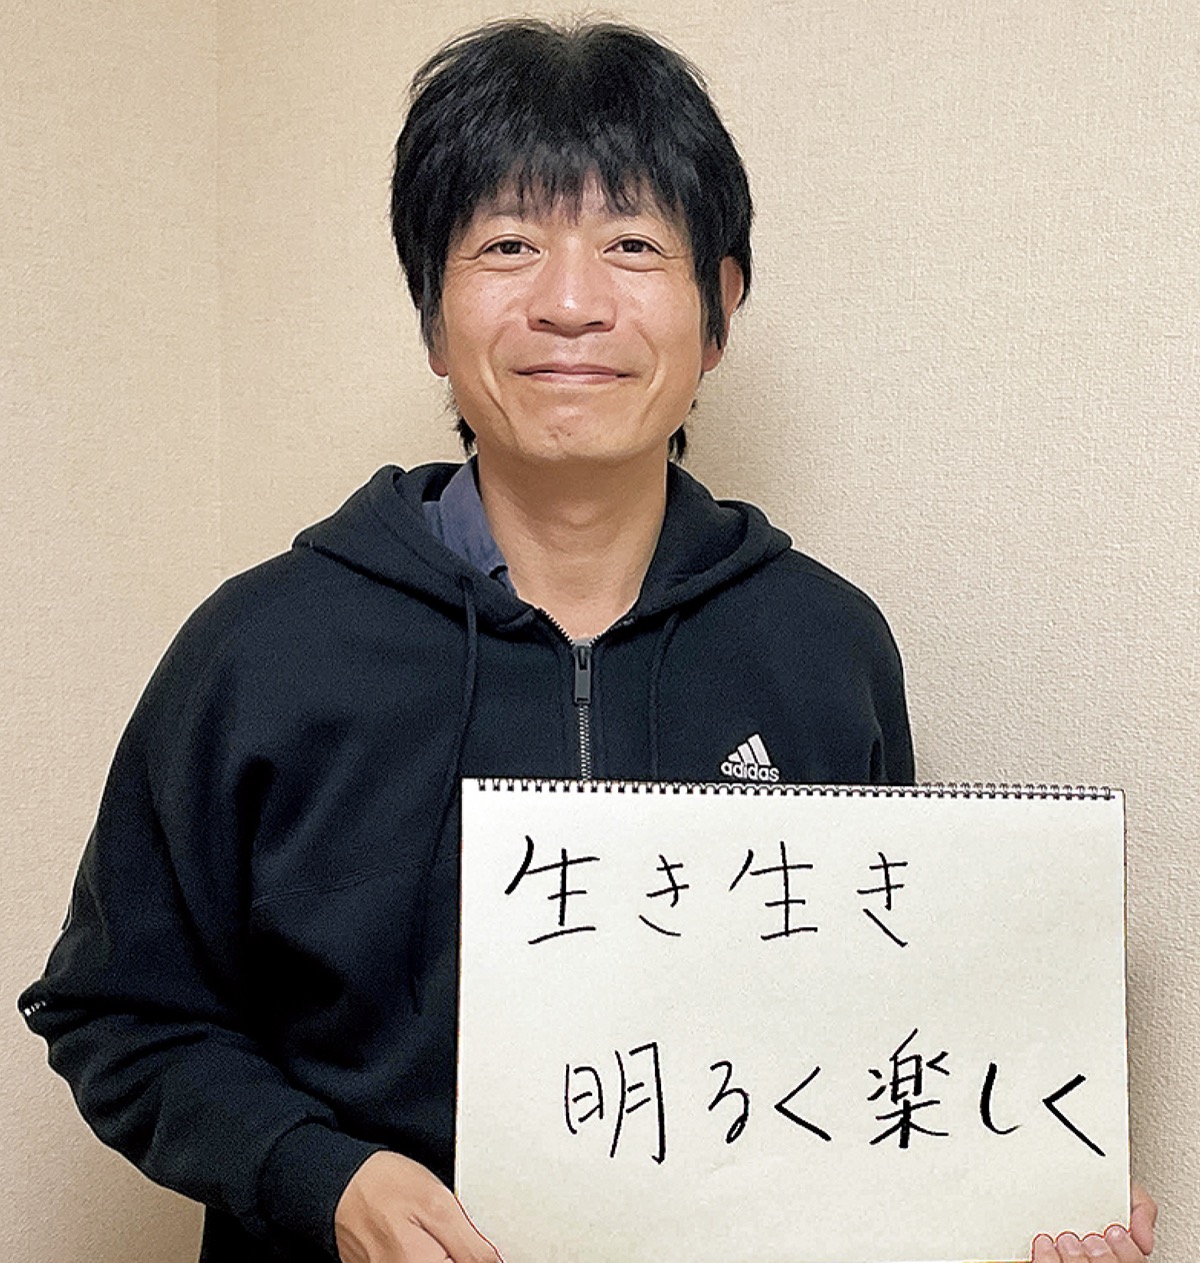 adidas
生き生き
明るく楽しく